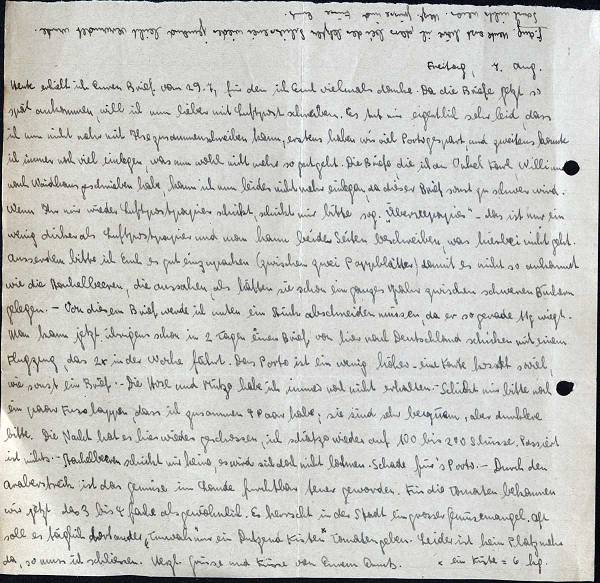 Freitag, 7. Aug.
Heute erhielt ich Euren Brief vom 29.7, für den ich Euch vielmals danke. Da die Briefe jetzt so
spät ankommen, will ich nun lieber mit Luftpost schreiben. Es tut mir eigentlich sehr leid, dass
ich nun nicht mehr mit Ilse zusammenschreiben kann, erstens haben wir viel Porto gespart und zweitens konnte
ich immer noch viel einlegen, was nun wohl nicht mehr so gut geht. Die Briefe die ich an Onkel Karl, Willi und
nach Waidhaus geschrieben habe, kann ich nun leider nicht mehr einlegen, da dieser Brief sonst zu schwer wird.
Wenn Ihr mir wieder Luftpostpapier schickt, schickt mir bitte sog. "Überseepapier" - das ist nur ein
wenig dicker als Luftpostpapier und man kann beide Seiten beschreiben, was hierbei nicht geht.
Ausserdem bitte ich Euch es gut einzupacken (zwischen zwei Pappblätter) damit es nicht so ankommt
wie die Bankelbeeren, die aussahen, als hätten sie schon ein ganzes Jahr zwischen schweren Büchern
gelegen. - Von diesem Brief werde ich unten ein Stück abschneiden müssen, da er so gerade wiegt.
Man kann jetzt übrigens schon in 2 Tagen einen Brief von hier nach Deutschland schicken mit einem
Flugzeug, das 2x in der Woche fährt. Das Porto ist ein wenig höher - eine Karte kostet soviel,
wie sonst ein Brief. - Die Hose und Mütze habe ich immer noch nicht erhalten. - Schickt mir bitte noch
ein paar Fusslappen, dass ich zusammen 4 Paar habe; sie sind sehr bequem, aber dunklere
bitte. Die Nacht hat es hier wieder geschossen, ich schätze wieder auf 100 bis 200 Schüsse. Passiert
ist nichts. - schickt mir keine, es wird sich doch nicht lohnen. Schade für's Porto. - Durch den
Araberstreik ist das Gemüse im Lande furchtbar teuer geworden. Für die Tomaten bekommen
wir jetzt das 3 bis 4 fache als gewöhnlich. Es herrscht in der Stadt ein grosser Gemüsemangel. Oft
soll es täglich nur ein Dutzend Kisten* Tomaten geben. Leider ist kein Platz mehr
da, so muss ich schliessen. Herzl. Grüsse und Küsse von Eurem
* ein Kiste = 6 kg.